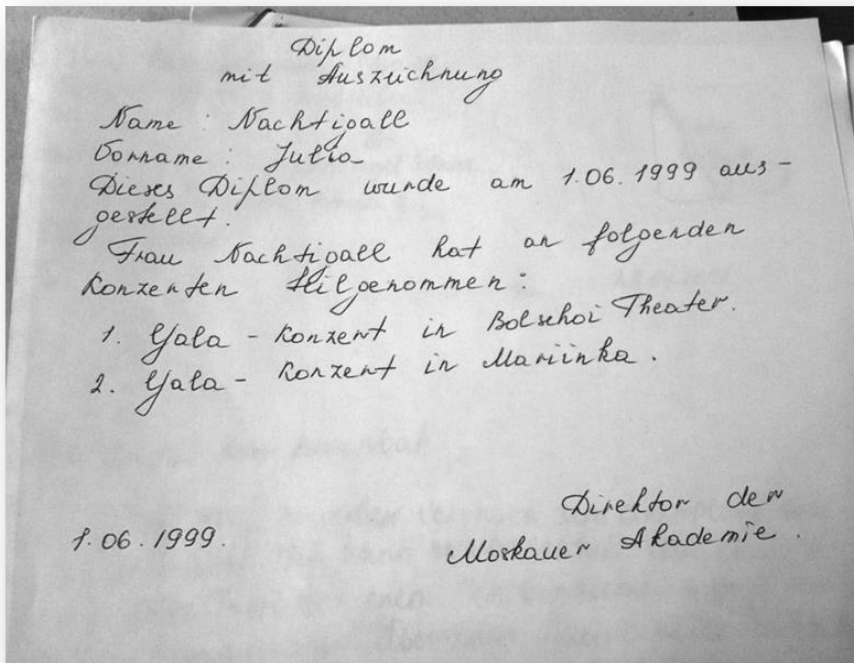 Diplom
mit Auszeichnung
Name : Nachtigall
Vorname : Julia
Dieses Diplom wurde am 1.06.1999 aus-
gestellt.
Frau Nachtigall hat an folgenden
Konzerten teilgenommen :
1. Gala - Konzert in Bolschoi Theater.
2. Gala - Konzert in Mariinka.
Direktor der
1.06.1999.
Moskauer Akademie.